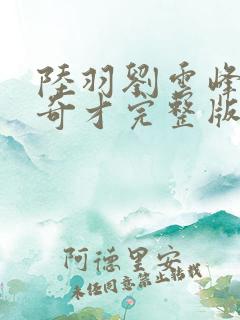 陸羽劉雲峰
奇才完整版
阿德里安
未经同意禁止转载